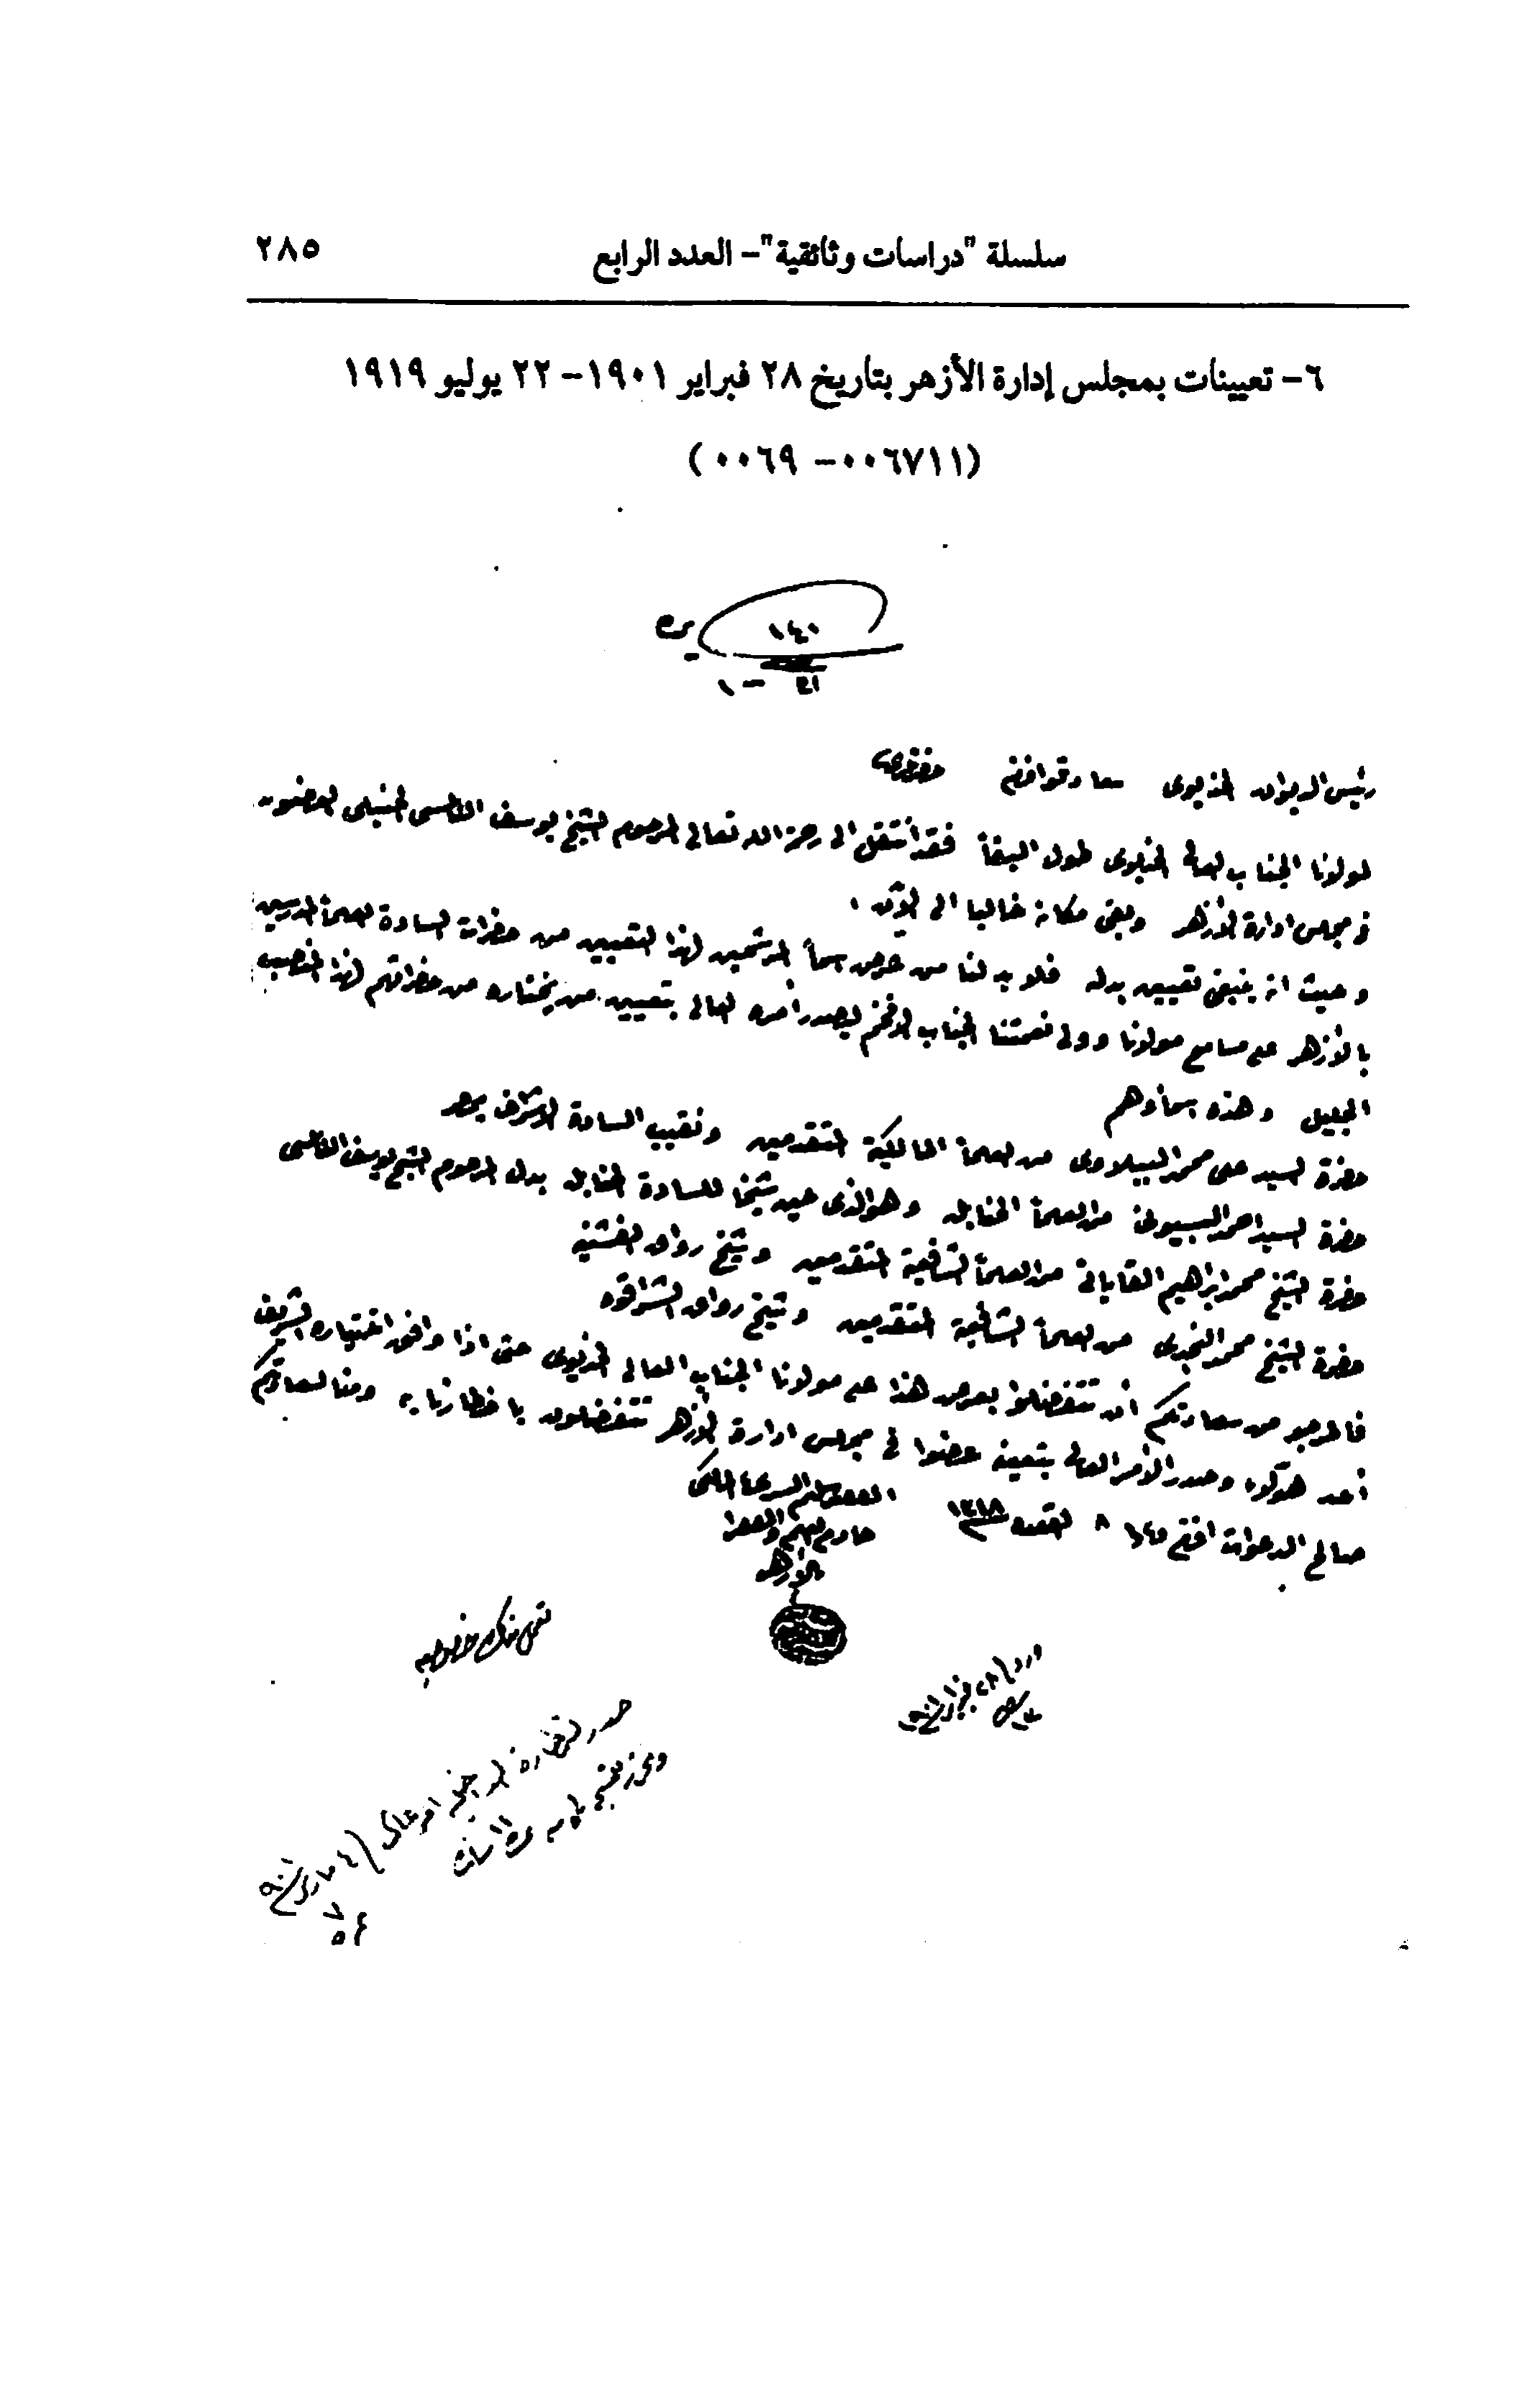 سلسلة "دراسات وثائقية"- العدد الرابع ٢٨٥
٦- تعيينات بمجلس إدارة الأزهر بتاريخ ٢٨ فبراير ١٩٠١- ٢٢ يوليو ١٩١٩
(٠٠٦٧١١- ٠٠٦٩)
رئيس الديوان الخديوى سعادتلو افندم حضرتلرى
لمولانا الجناب العالى الخديوى طول البقأ فقد انتقل الى رحمة الله تعالى المرحوم الشيخ يوسف النابلسى الحنبلى العضو
فى مجلس ادارة الازهر وبقى مكانه خاليا الى الآن
وحيث انه ينبغى تعيين بدله فلا بد لنا من عرض اسمأ المرشحين لهذا التعيين من حضرات السادة العلمأ المدرسين
بالأزهر على مسامع مولانا وولى نعمتنا الجناب الافخم ليصدر أمره العالى بتعيين من يختاره من حضراتهم لهذا المنصب
الجليل وهذه اسماؤهم
حضرة السيد على محمد الببلاوى من العلمأ المالكية المتقدمين ونقيب السادة الاشراف بمصر
حضرة السيد احمد البسيونى من العلمأ الحنابله وهو الذى عين شيخا للسادة الحنابله بدل المرحوم الشيخ يوسف النابلسى
حضرة الشيخ محمد ابراهيم القاياتى من العلمأ الشافعية المتقدمين وشيخ رواق الفشنيه
حضرة الشيخ محمد النجدى من العلمأ الشافعية المتقدمين وشيخ رواق الشراقوه
فالمرجو من سعادتكم أن تتفضلوا بعرض هذا على مولانا الجناب العالى الخديوى حتى اذا وافق اختياره الشريف
أحد هؤلاء وصدر الأمر العالى بتعيينه عضوا فى مجلس ادارة الأزهر تتفضلون باخطارنا به ومنا لسعادتكم
صالح الدعوات افندم ٨ القعده ١٣١٨
خادم العلم والفقرا
بالأزهر